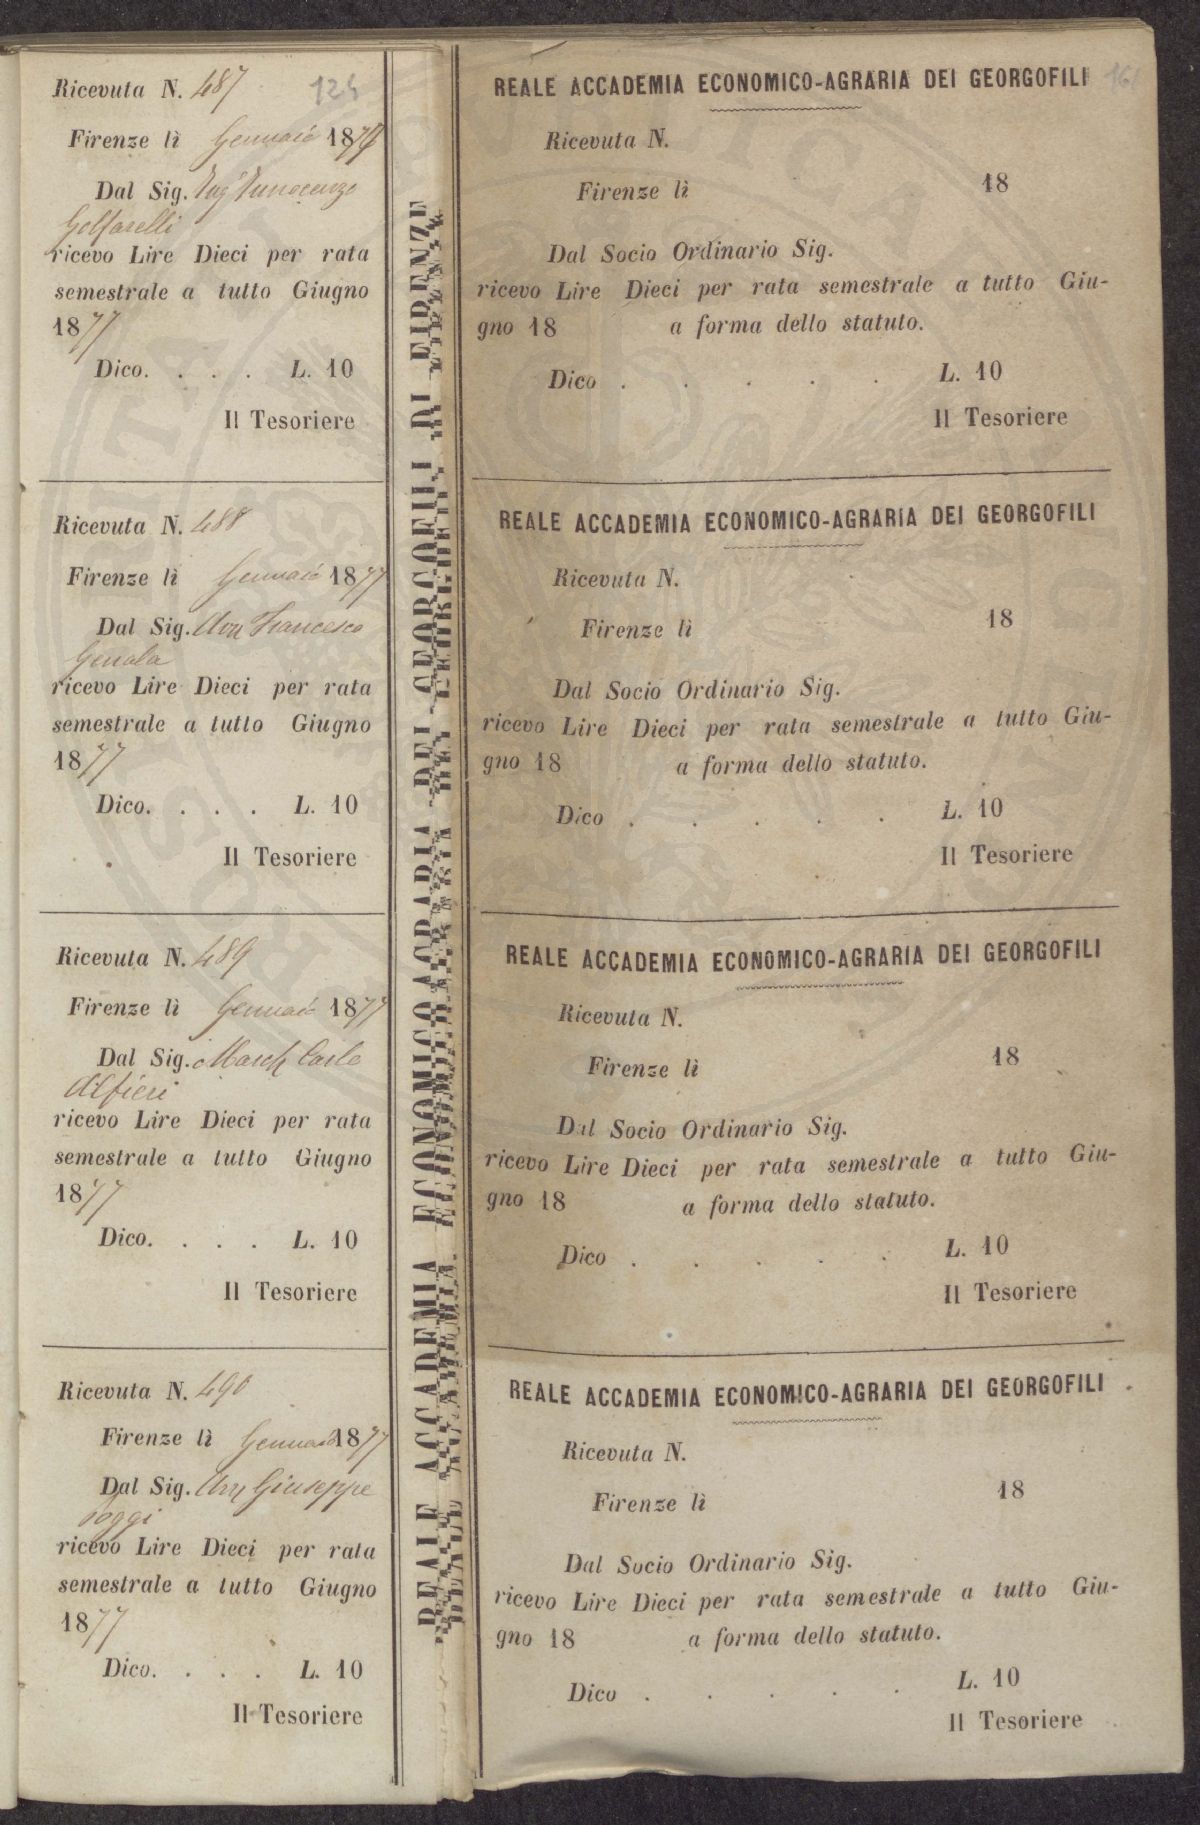 Ricevuta N. 487
124
Firenze lì Gennaio 1877
Dal Sig. Ing Innocenzo
Golfarelli
ricevo Lire Dieci per rata
semestrale a tutto Giugno
1877
Dico. . . . L. 10
Il Tesoriere
Ricevuta N. 488
Firenze lì Gennaio 1877
Dal Sig. Avv Francesco
Genala
ricevo Lire Dieci per rata
semestrale a tutto Giugno
1877
Dico. . . . L. 10
Il Tesoriere
Ricevuta N. 489
Firenze lì Gennaio 1877
Dal Sig. March Carlo
Alfieri
ricevo Lire Dieci per rata
semestrale a tutto Giugno
1877
Dico. . . . L. 10
Il Tesoriere
Ricevuta N. 490
Firenze lì Gennaio 1877
Dal Sig. Avv Giuseppe
Poggi
ricevo Lire Dieci per rata
semestrale a tutto Giugno
1877
Dico. . . . L. 10
Il Tesoriere
REALE ACCADEMIA ECONOMICO-AGRARIA DEI GEORGOFILI DI FIRENZE
REALE ACCADEMIA ECONOMICO-AGRARIA DEI GEORGOFILI
Ricevuta N.
Firenze lì 18
Dal Socio Ordinario Sig.
ricevo Lire Dieci per rata semestrale a tutto Giu-
gno 18 a forma dello statuto.
Dico . . . . . L. 10
Il Tesoriere
REALE ACCADEMIA ECONOMICO-AGRARIA DEI GEORGOFILI
Ricevuta N.
Firenze lì 18
Dal Socio Ordinario Sig.
ricevo Lire Dieci per rata semestrale a tutto Giu-
gno 18 a forma dello statuto.
Dico . . . . . L. 10
Il Tesoriere
REALE ACCADEMIA ECONOMICO-AGRARIA DEI GEORGOFILI
Ricevuta N.
Firenze lì 18
Dal Socio Ordinario Sig.
ricevo Lire Dieci per rata semestrale a tutto Giu-
gno 18 a forma dello statuto.
Dico . . . . . L. 10
Il Tesoriere
REALE ACCADEMIA ECONOMICO-AGRARIA DEI GEORGOFILI
Ricevuta N.
Firenze lì 18
Dal Socio Ordinario Sig.
ricevo Lire Dieci per rata semestrale a tutto Giu-
gno 18 a forma dello statuto.
Dico . . . . . L. 10
Il Tesoriere